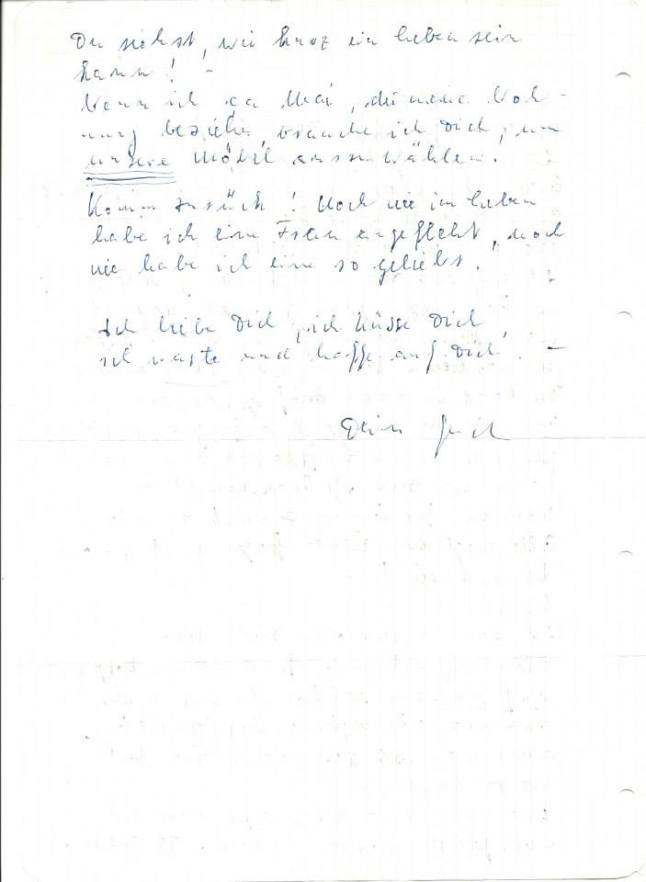 Du siehst, wie kurz ein Leben sein
kann! –
Wenn ich ca Mai, die neue Woh-
nung beziehe, brauche ich Dich, um
unsere Möbel auszuwählen.
Komm zurück! Noch nie im Leben
habe ich eine Frau angefleht, noch
nie habe ich eine so geliebt.
Ich liebe Dich, ich küsse Dich,
ich warte und hoffe auf Dich. –
Dein